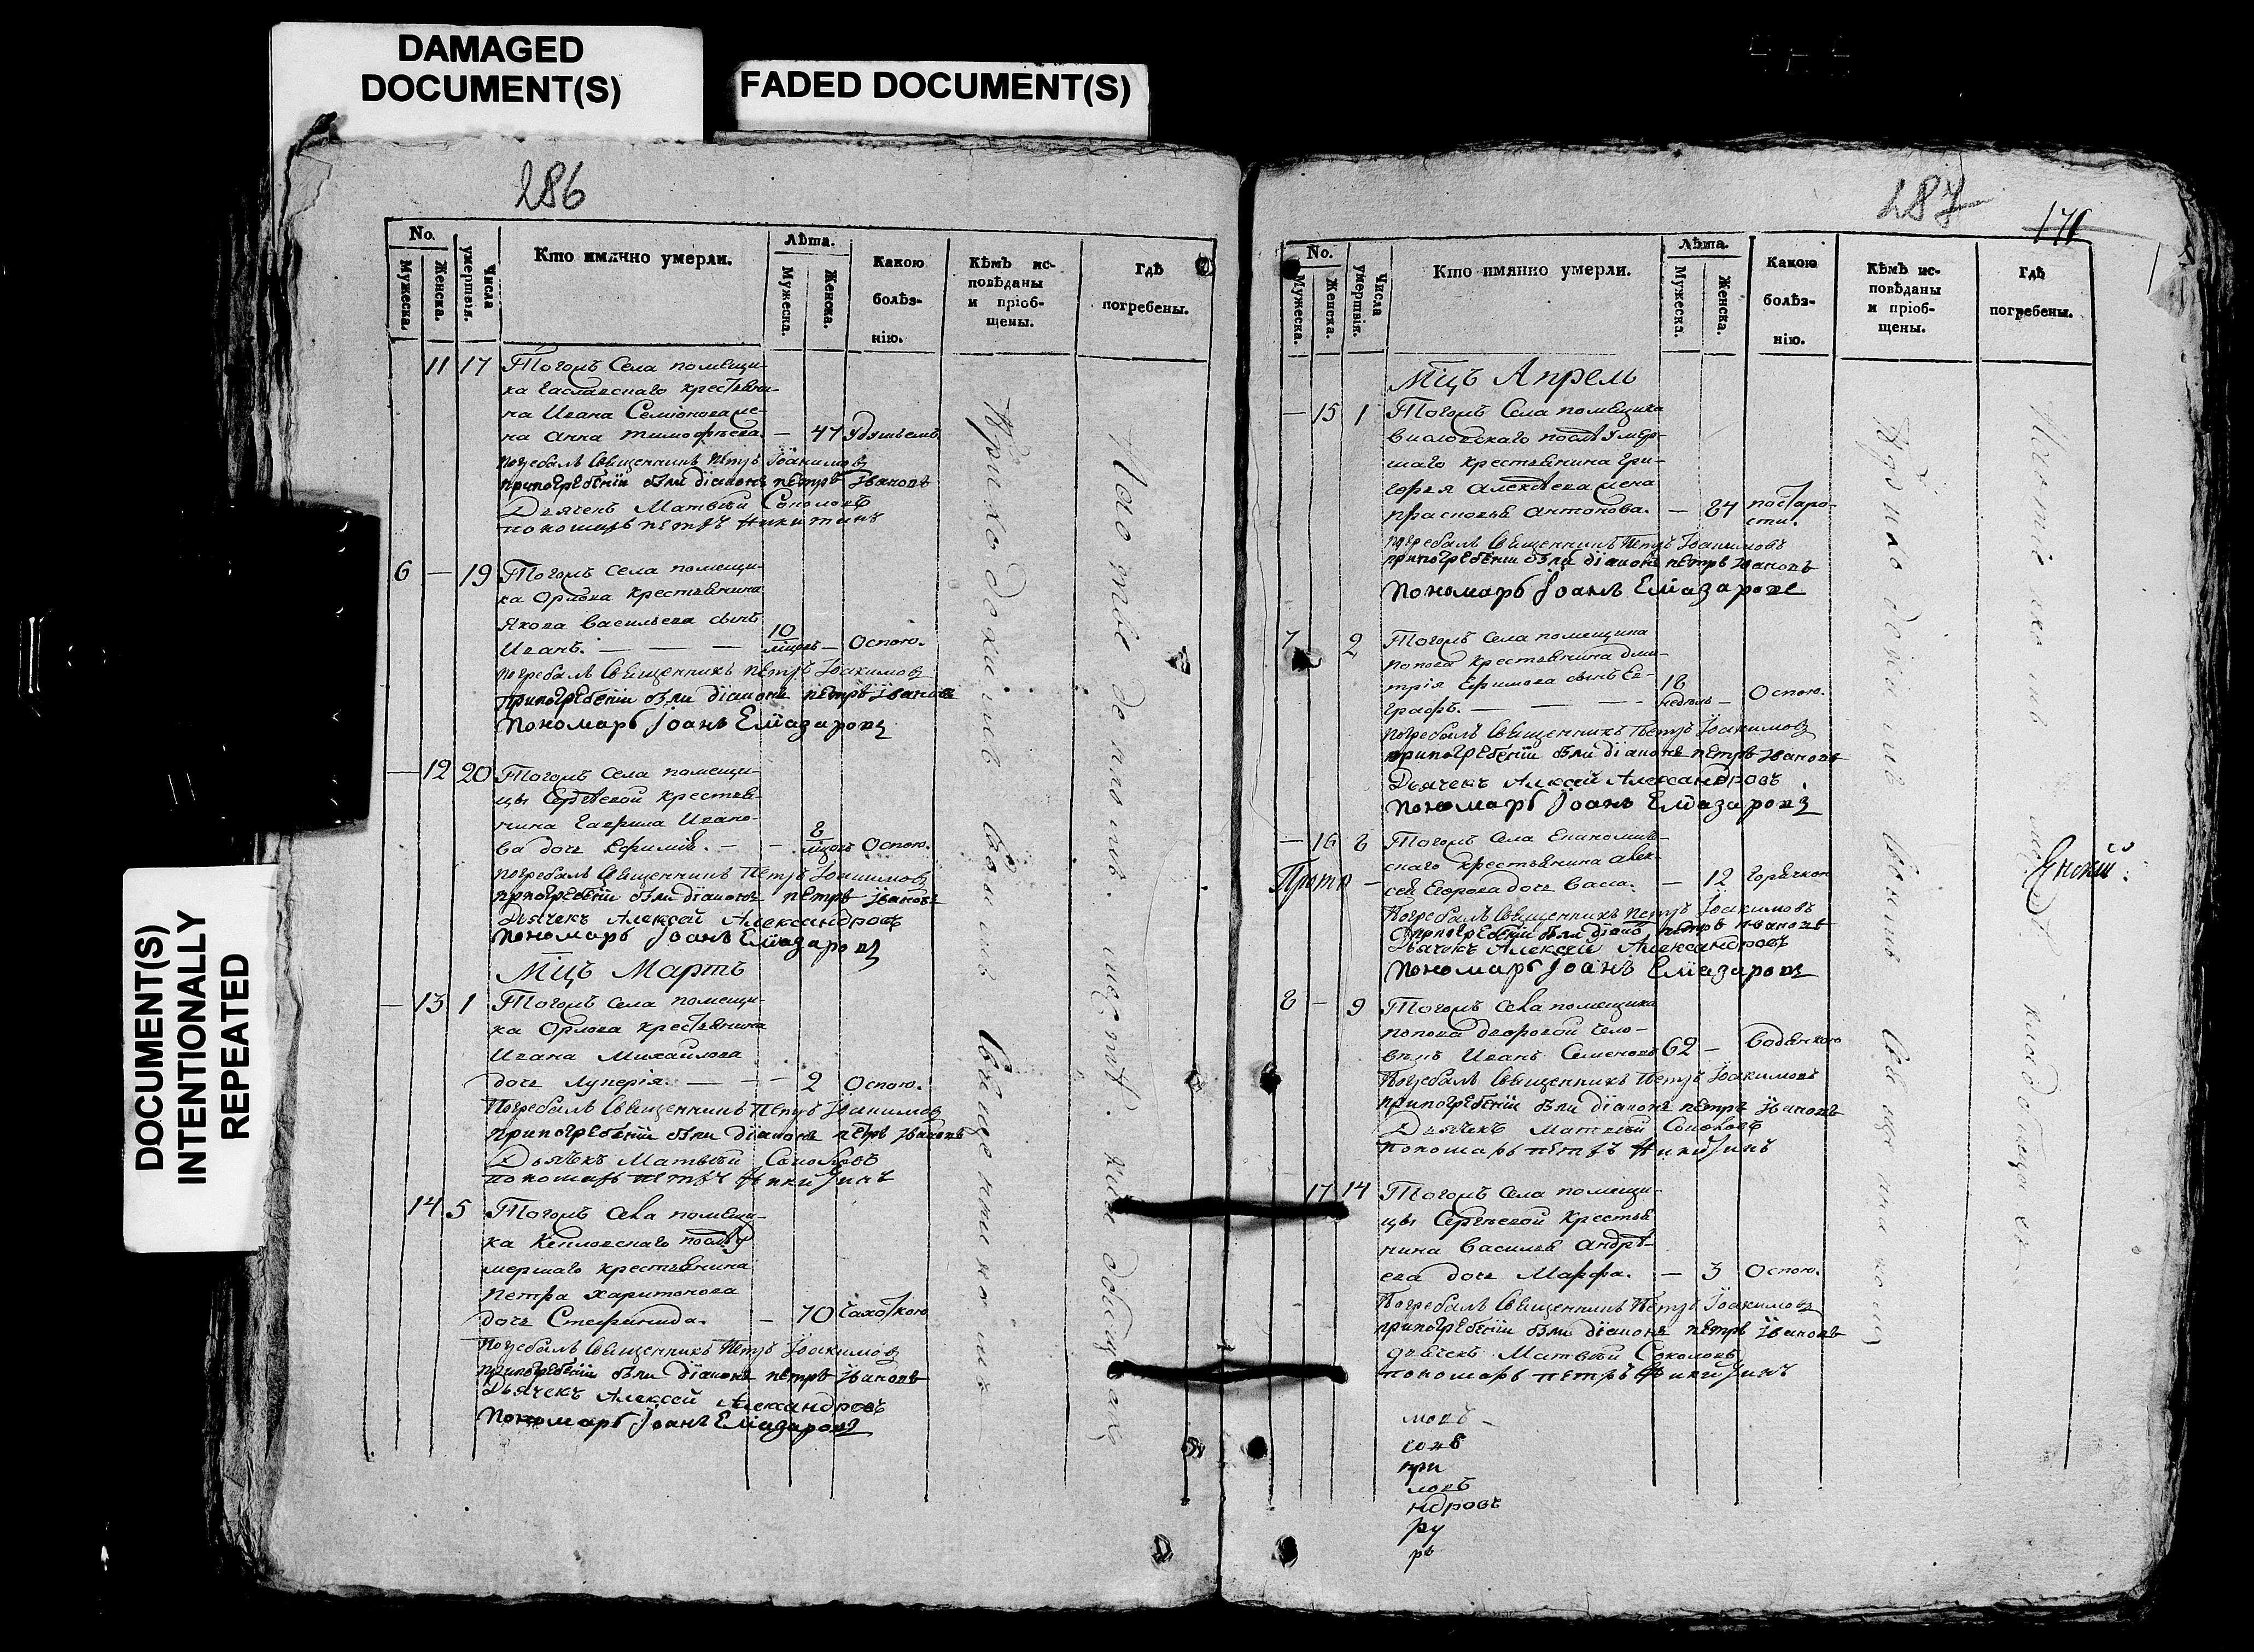 DAMAGED
DOCUMENT(S)
FADED DOCUMENT(S)
DOCUMENT(S)
INTENTIONALLY
REPEATED
286
No.
Мужеска.
Женска.
Числа умертвія.
Кто имянно умерли.
Лѣта.
Мужеска.
Женска.
Какою
болѣз-
нію.
Кѣмъ ис-
повѣданы
и пріоб-
щены.
Гдѣ
погребены.
11 17 Тогожъ Села помещи-
ка крестьяни-
на Ивана Семіонова же-
на Анна Тимофѣева. — 47 Удушьемъ
погребалъ Священникъ Петръ Іоакимовъ
при погребеніи были діаконъ петръ Ивановъ
Дьячекъ Матвѣй Соколовъ
пономарь петръ Никитинъ
6 — 19 Тогожъ села помещи-
ка Орлова крестьянина
Якова Васильева сынъ
Иванъ. — — — 10 — Оспою.
погребалъ Священникъ Петръ Іоакимовъ
При погребеніи были діаконъ петръ Ивановъ
Пономарь Іоанъ Елиазаровъ
— 12 20 Тогожъ села помещи-
цы Сергѣевой крестья-
нина Гаврила Ивано-
ва дочь Ефимія. — — 8 Оспою.
погребалъ Священникъ Петръ Іоакимовъ
при погребеніи были діаконъ петръ Ивановъ
Дьячекъ Алексей Александровъ
Пономарь Іоанъ Елиазаровъ
Мцъ Мартъ
— 13 1 Тогожъ села помещи-
ка Орлова крестьянина
Ивана Михайлова
дочь Лукерія. — — — 2 Оспою.
Погребалъ Священникъ Петръ Іоакимовъ
при погребеніи были діаконъ петръ Ивановъ
Дьячекъ Матвѣй Соколовъ
пономарь петръ Никитинъ
14 5 Тогожъ Села помещи-
ка послѣ у
мершаго крестьянина
Петра Харитонова
дочь Стефанида. — 70 Чахоткою
погребалъ Священникъ Петръ Іоакимовъ
при погребеніи были діаконъ петръ Ивановъ
Дьячекъ Алексей Александровъ
Пономарь Іоанъ Елиазаровъ
Приходскимъ Священникомъ
287
171
No.
Мужеска.
Женска.
Числа умертвія.
Кто имянно умерли.
Лѣта.
Мужеска.
Женска.
Какою
болѣз-
нію.
Кѣмъ ис-
повѣданы
и пріоб-
щены.
Гдѣ
погребены.
Мцъ Апрель
— 15 1 Тогожъ Села помещика
послѣ умер-
шаго крестьянина Гри-
горья Алексѣева жена
Прасковья Антонова. — 84 по старо-
сти.
погребалъ Священникъ Петръ Іоакимовъ
при погребеніи были діаконъ петръ Ивановъ
Пономарь Іоанъ Елиазаровъ
7 2 Тогожъ Села помещика
Попова крестьянина Дми-
трія Ефимова сынъ Ев-
графъ. — — — 18 недѣль — Оспою.
погребалъ Священникъ Петръ Іоакимовъ
при погребеніи были діаконъ петръ Ивановъ
Дьячекъ Алексей Александровъ
Пономарь Іоанъ Елиазаровъ
— 16 8 Тогожъ Села Экономиче-
скаго крестьянина Алек-
сея Егорова дочь Васса. — 12 Горячкою
Прото —
Погребалъ Священникъ Петръ Іоакимовъ
при погребеніи были діаконъ петръ Ивановъ
Дьячекъ Алексей Александровъ
Пономарь Іоанъ Елиазаровъ
8 — 9 Тогожъ Села помещика
Попова дворовой чело-
векъ Иванъ Семеновъ 62 — Водянкою
Погребалъ Священникъ Петръ Іоакимовъ
при погребеніи были діаконъ петръ Ивановъ
Дьячекъ Матвѣй Соколовъ
пономарь петръ Никитинъ
17 14 Тогожъ Села помещи-
цы Сергѣевой крестья
нина Василья Андрѣ-
ева дочь Марфа. — 3 Оспою.
Погребалъ Священникъ Петръ Іоакимовъ
при погребеніи были діаконъ петръ Ивановъ
дьячекъ Матвѣй Соколовъ
пономарь петръ Никитинъ
мовъ
при
ловъ
ндровъ
ру
рь